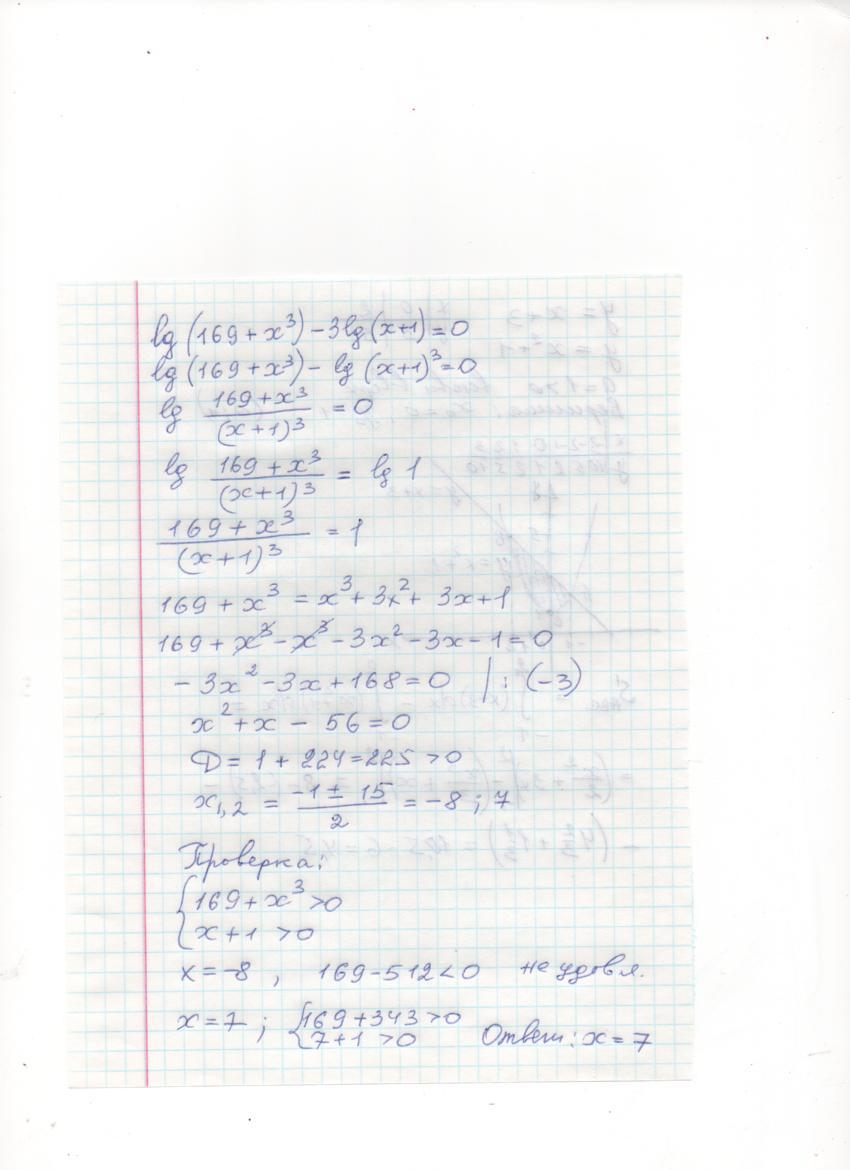 lg (169 + x³) - 3lg (x+1) = 0
lg (169 + x³) - lg (x+1)³ = 0
lg (169 + x³)/(x+1)³ = 0
lg (169 + x³)/(x+1)³ = lg 1
(169 + x³)/(x+1)³ = 1
169 + x³ = x³ + 3x² + 3x + 1
169 + x³ - x³ - 3x² - 3x - 1 = 0
- 3x² - 3x + 168 = 0 | : (-3)
x² + x - 56 = 0
D = 1 + 224 = 225 > 0
x₁,₂ = (-1 ± 15)/2 = -8 ; 7
Проверка:
{ 169 + x³ > 0
x + 1 > 0
x = -8 , 169 - 512 < 0 не удовл.
x = 7 ; { 169 + 343 > 0
7 + 1 > 0 Ответ: x = 7